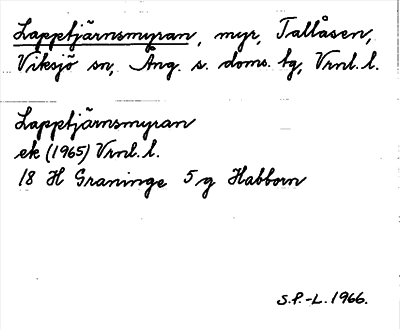 Lapptjärnsmyran, myr, Tallåsen,
Viksjö sn, Ång. s. doms. tg, Vrnl. l.
Lapptjärnsmyran
ek (1965) Vrnl. l.
18 H Graninge 5 g Habborn
S.P.-L. 1966.